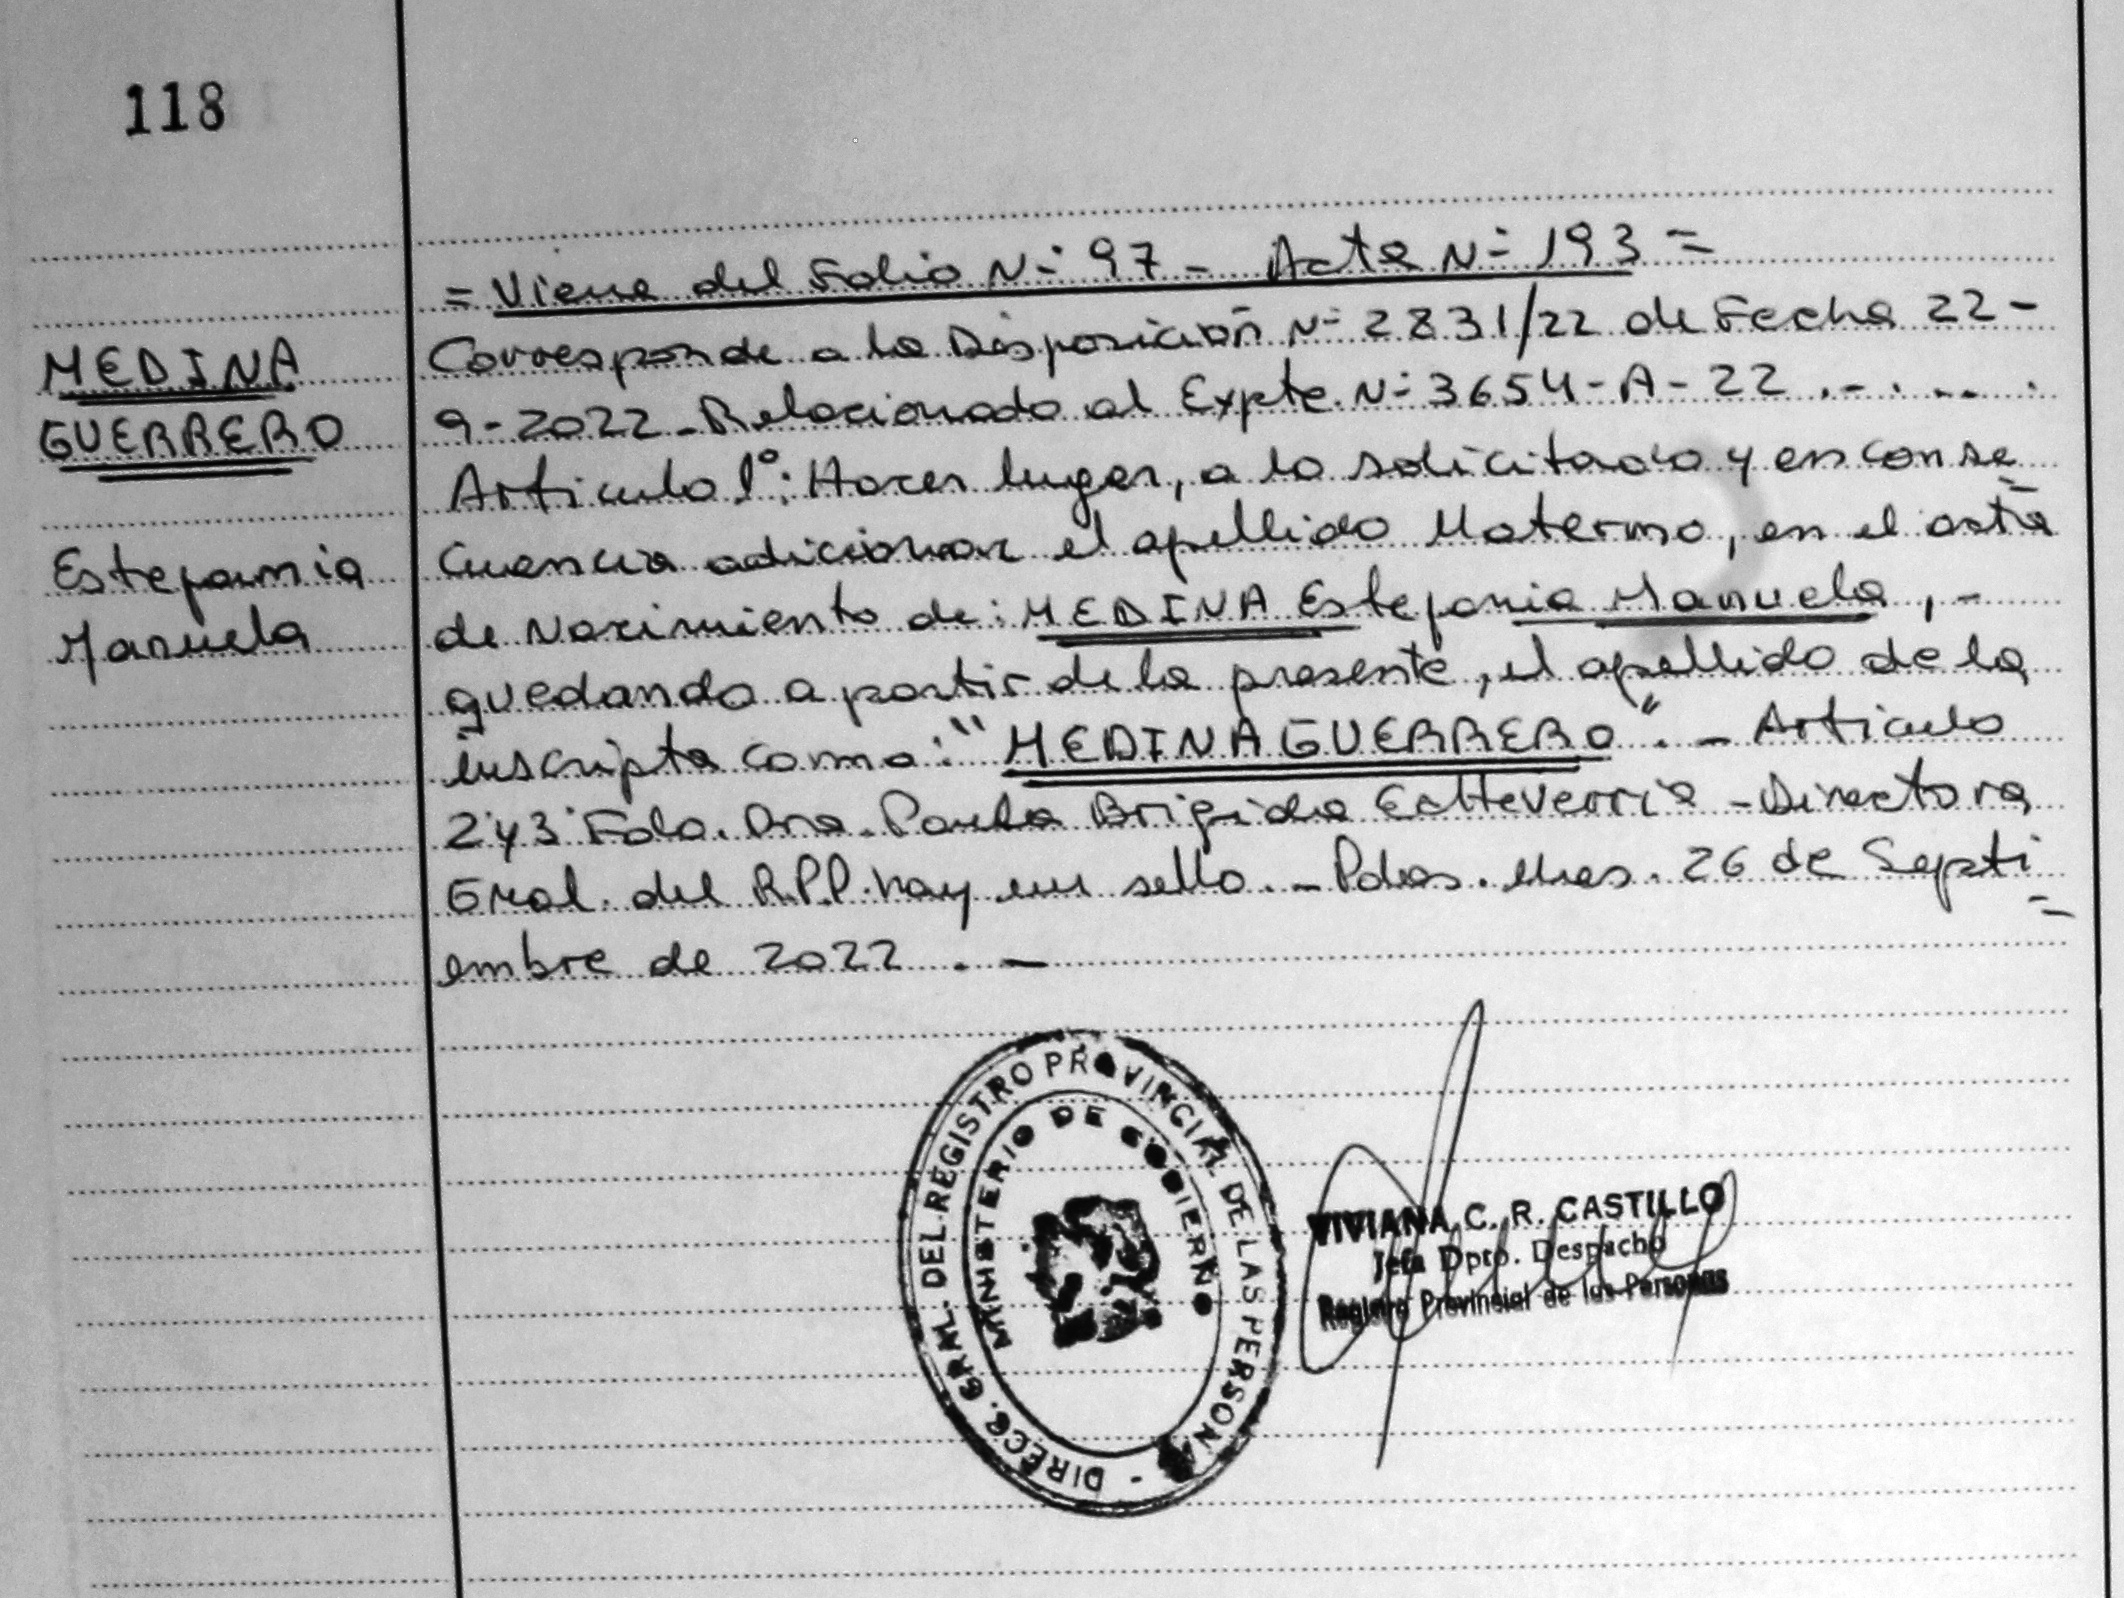 118
= Viene del Folio N- 97 - Acta N- 193 =
MEDINA
GUERRERO
Estefamia
Manuela
Corresponde a la Disposición N- 2831/22 de Fecha 22-
9-2022 - Relacionado al Expte. N- 3654-A-22 .-.-...
Articulo 1°: Hacer lugar, a lo solicitado y en conse
cuencia adicionar el apellido Materno, en el acta
de Nacimiento de: MEDINA Estefania Manuela, -
quedando a partir de la presente, el apellido de la
inscripta como: "MEDINA GUERRERO". - Articulo
2 y 3 Fdo. Dra. Paula Brigida Echeverria - Directora
Gral. del R.P.P. hay un sello. - Pdas. Mnes. 26 de Septi
embre de 2022 . -
DIRECC. GRAL. DEL REGISTRO PROVINCIAL DE LAS PERSONAS -
MINISTERIO DE GOBIERNO
VIVIANA C. R. CASTILLO
Jefa Dpto. Despacho
Registro Provincial de las Personas